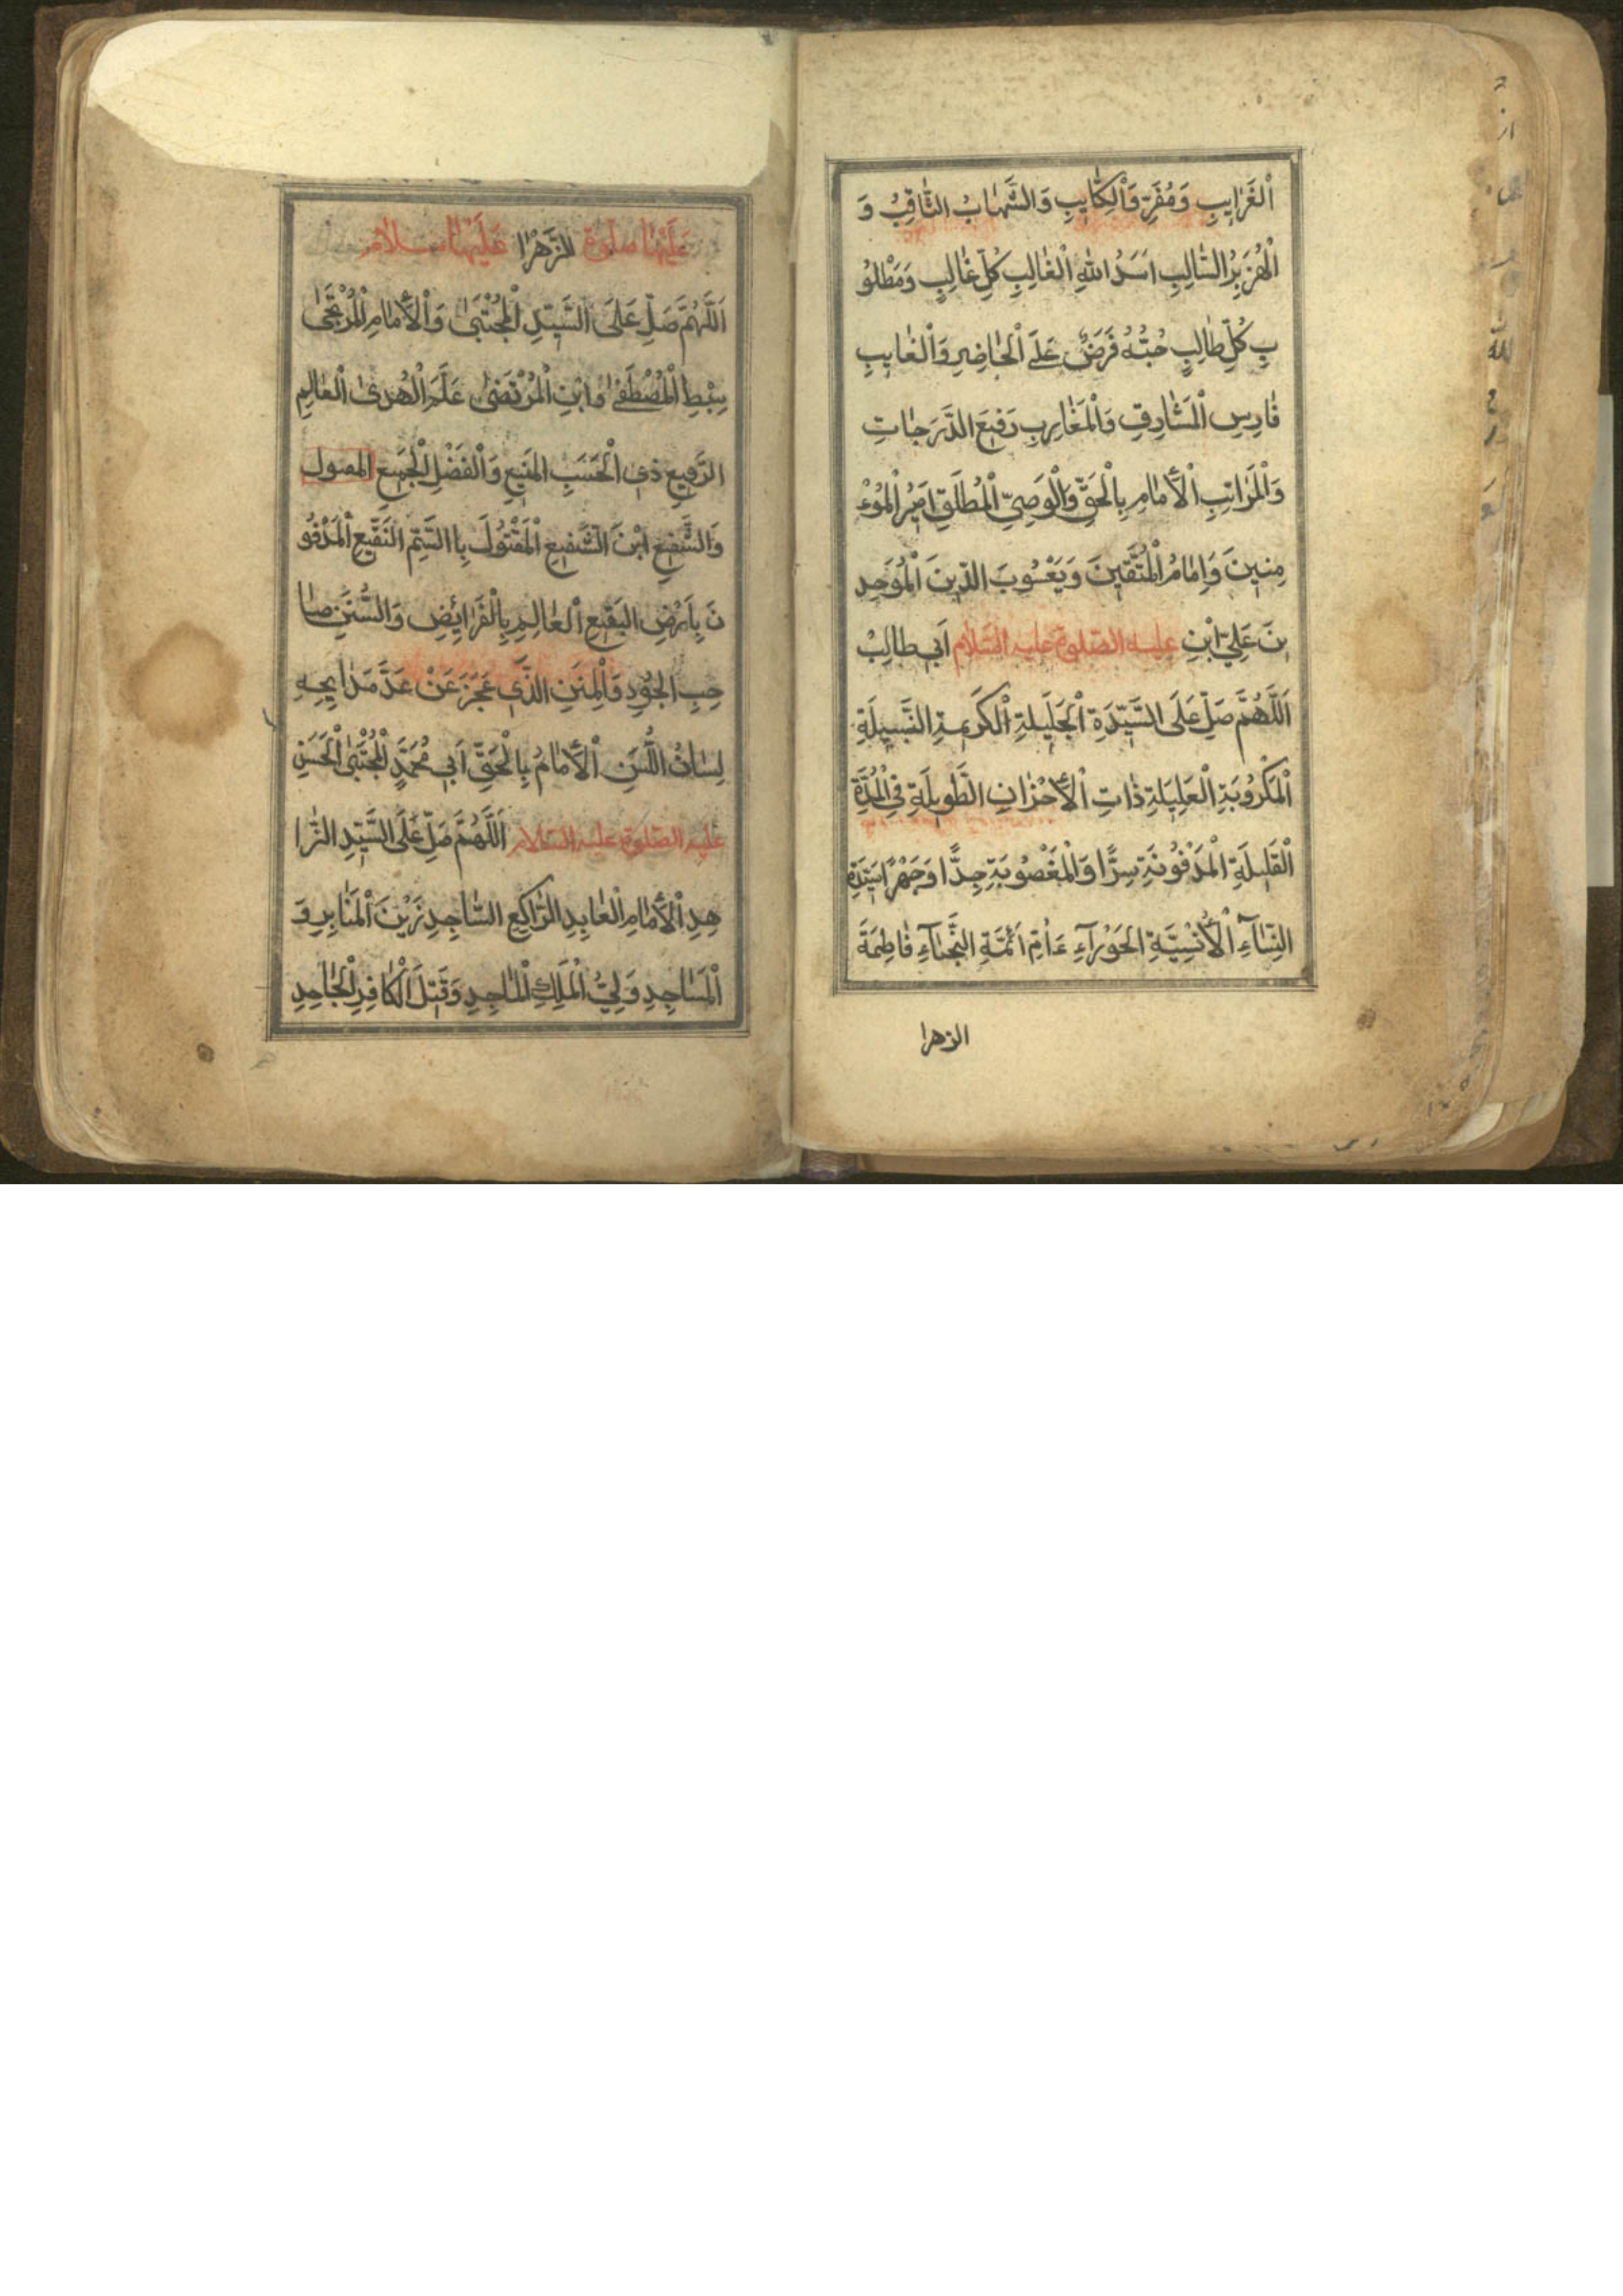 اَلْغَرَايِبِ وَمُفَرِّقِ الْكَتَايِبِ وَالشَّهَابُ الثَّاقِبُ وَ
الْهُزَبِرُ السَّالِبِ اَسَدُ اللهِ الْغَالِبِ كُلِّ غَالِبٍ وَمَطْلُو
بِ كُلِّ طَالِبٍ حُبُّهُ فَرَضٌ عَلَى الْحَاضِرِ وَالْغَايِبِ
فَارِسِ الْمَشَارِقِ وَالْمَغَارِبِ رَفِيعَ الدَّرَجَاتِ
وَالْمَرَاتِبِ الْأَمَامِ بِالْحَقِّ وَالْوَصِيِّ الْمُطْلَقِ اَمِيرُ الْمُوءْ
مِنِينَ وَاِمَامُ الْمُتَّقِينَ وَيَعْسُوبَ الدِّينَ الْمُوَحِدِ
ينَ عَلِيِّ ابْنِ عليه الصلوة عليه السلام اَبِي طَالِبْ
اَللَّهُمَّ صَلِّ عَلَى السَّيِّدَةِ الْجَلِيلَةِ الْكَرِيمَةِ النَّبِيلَةِ
الْمَكْرُوبَةِ الْعَلِيلَةِ ذَاتِ الْأَحْزَانِ الطَّوِيلَةِ فِي الْمُدَّةِ
الْقَلِيلَةِ الْمَدْفُونَةِ سِرًّا وَالْمَغْصُوبَةِ جِدًّا وَجَهْرًا سَيِّدَةِ
النِّسَآءِ الْأُنْسِيَّةِ الحَوْرَآءِ ءَاُمِّ اَئِمَّةِ النُّجَبَآءِ فَاطِمَةَ
الزهرا
عَلَيْهَا صلوة الزَّهْرَا عَلَيْهَا سلام
اَللَّهُمَّ صَلِّ عَلَى السَّيِّدِ الْمُجْتَبَى وَالْأَمَامِ الْمُرْتَجَى
سِبْطِ الْمُصْطَفَى وَابْنِ الْمُرْتَضَى عَلَمِ الْهُدَى الْعَالِمِ
الرَّفِيعِ ذِي الْحَسَبِ المَنِيعِ وَالْفَضْلِ الْجَمِيعِ
وَالشَّفِيعِ ابْنَ الشَّفِيعِ الْمَقْتُولَ بِاالسَّمِّ النَقِيعِ الْمَدْفُو
نَ بِاَرْضِ البَقِيعِ الْعَالِمِ بِالْفَرَائِضِ وَالسُّنَنِ صَا
حِبِ الجُودِ وَالْمِنَنِ الَّذِي عَجَزَ عَنْ عَدَّ مَدَايِحِهِ
لِسَانُ اللُّسَنِ الْأَمَامُ بِالْحَقِّ اَبِي مُحَمَّدٍ الْمُجْتَبَى الْحَسَنِ
عليه الصلوة عليه السلام اَللَّهُمَّ صَلِّ عَلَى السَّيِّدِ الزَّا
هِدِ الْأَمَامِ الْعَابِدِ الرَّاكِعِ السَّاجِدِ زَيْنَ الْمَنَابِرِ وَ
الْمَسَاجِدِ وَلِيُّ الْمَلِكِ الْمَاجِدِ وَقَتِيلَ الْكَافِرِ الْجَاحِدِ